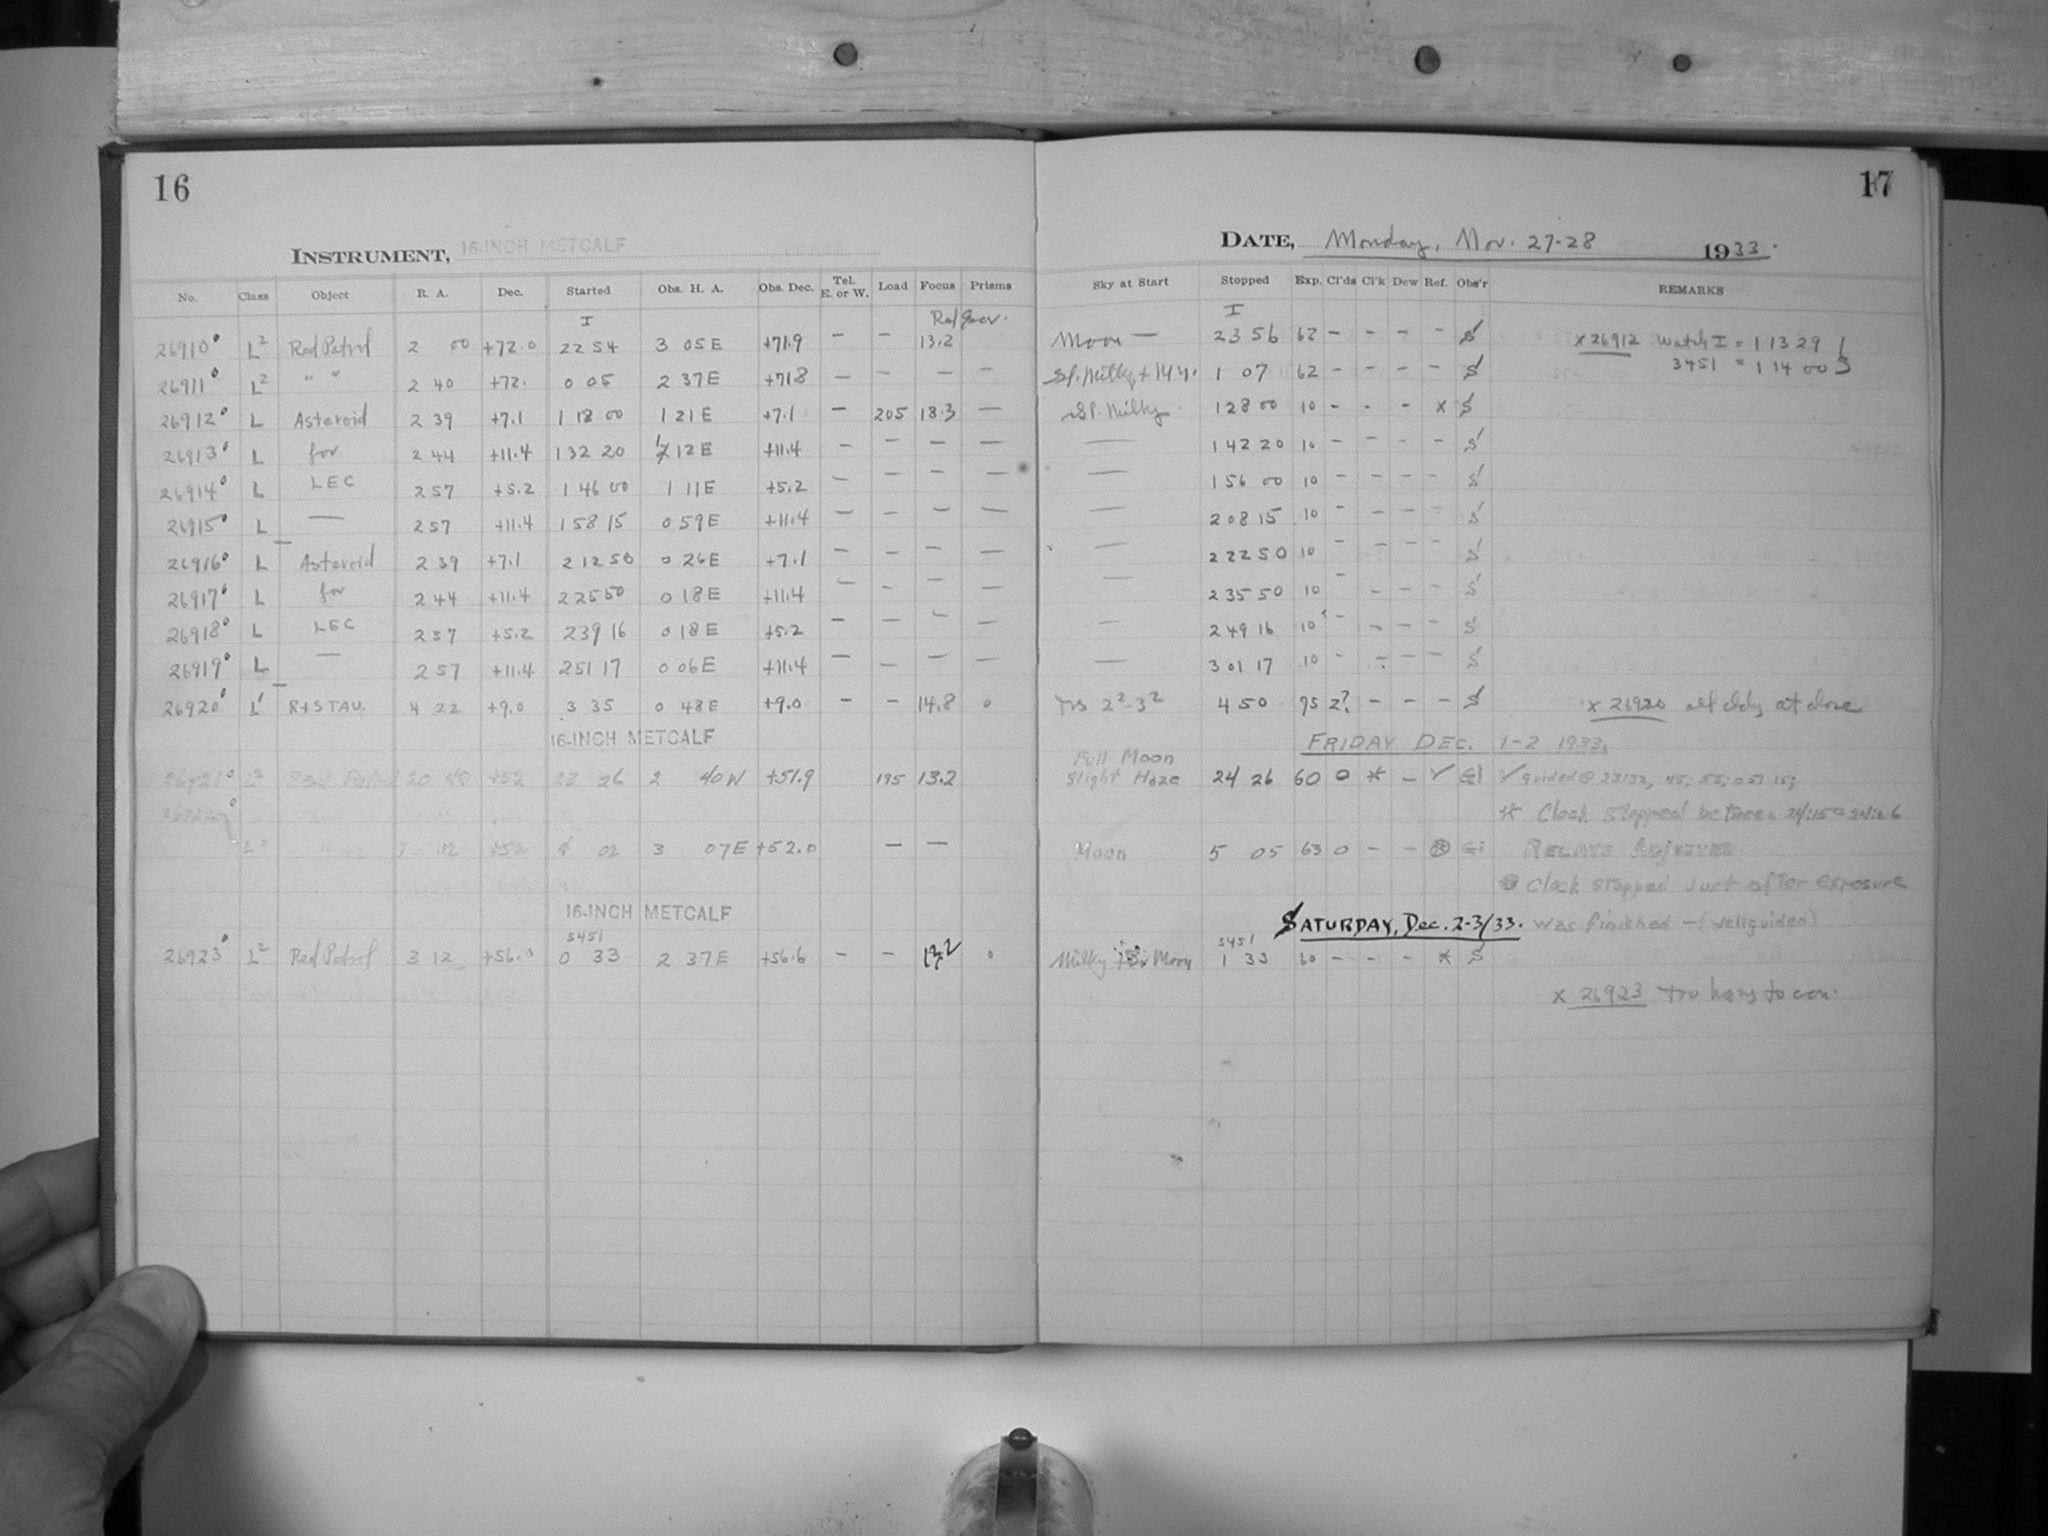 16
17
INSTRUMENT, 16-INCH METCALF
DATE, Monday, Nov. 27-28 1933.
No. Class Object R. A. Dec. Started Obs. H. A. Obs. Dec. Tel. E. or W. Load Focus Prisms Sky at Start Stopped Exp. Cl'ds Cl'k Dew Ref. Obs'r REMARKS
I I
26910 L² Red Patrol 2 00 +72.0 22 54 3 05 E +71.9 — — 13.2 Moon — 23 56 62 — — — — S x 26912 Watch I = 1 13 29
3451 = 1 14 00
26911 L² " " 2 40 +72. 0 05 2 37 E +71.8 — — — — 1 07 62 — — — — S
26912 L Asteroid 2 39 +7.1 1 18 00 1 21 E +7.1 — 205 18.3 — Sl. Milky 1 28 00 10 - - - x S
26913 L for 2 44 +11.4 1 32 20 1 12 E +11.4 — — — — — 1 42 20 10 - - - - S
26914 L LEC 2 57 +5.2 1 46 00 1 11 E +5.2 — — — — — 1 56 00 10 - - - - S
26915 L — 2 57 +11.4 1 58 15 0 59 E +11.4 — — — — — 2 08 15 10 - - - - S
26916 L Asteroid 2 39 +7.1 2 12 50 0 26 E +7.1 — — — — — 2 22 50 10 - - - - S
26917 L for 2 44 +11.4 2 25 50 0 18 E +11.4 — — — — — 2 35 50 10 - - - - S
26918 L LEC 2 57 +5.2 2 39 16 0 18 E +5.2 — — — — — 2 49 16 10 - - - - S
26919 L — 2 57 +11.4 2 51 17 0 06 E +11.4 — — — — — 3 01 17 10 - - - - S
26920 L' R+S TAU. 4 22 +9.0 3 35 0 48 E +9.0 — — 14.8 0 2²-3² 4 50 75 2? - - - S x 26920 all cldy at close
16-INCH METCALF
FRIDAY DEC. 1-2 1933.
Full Moon
26921 L² Red Patrol 20 48 +52 23 26 2 40 W +51.9 195 13.2 Slight Haze 24 26 60 0 * — ✓ Gi ✓ guided @ 23:32,
* Clock Stopped between
26922
L² " " +52 4 02 3 07 E +52.0 — — Moon 5 05 63 0 - - ⊗ Gi RELAYS ADJUSTED
⊗ Clock stopped just after exposure
16-INCH METCALF
SATURDAY, Dec. 2-3/33. was finished — (well guided)
3451 3451
26923 L² Red Patrol 3 12 +56.0 0 33 2 37 E +56.6 — — 13.2 0 Milky Moon 1 33 60 - - - * S
x 26923 too hazy to con.